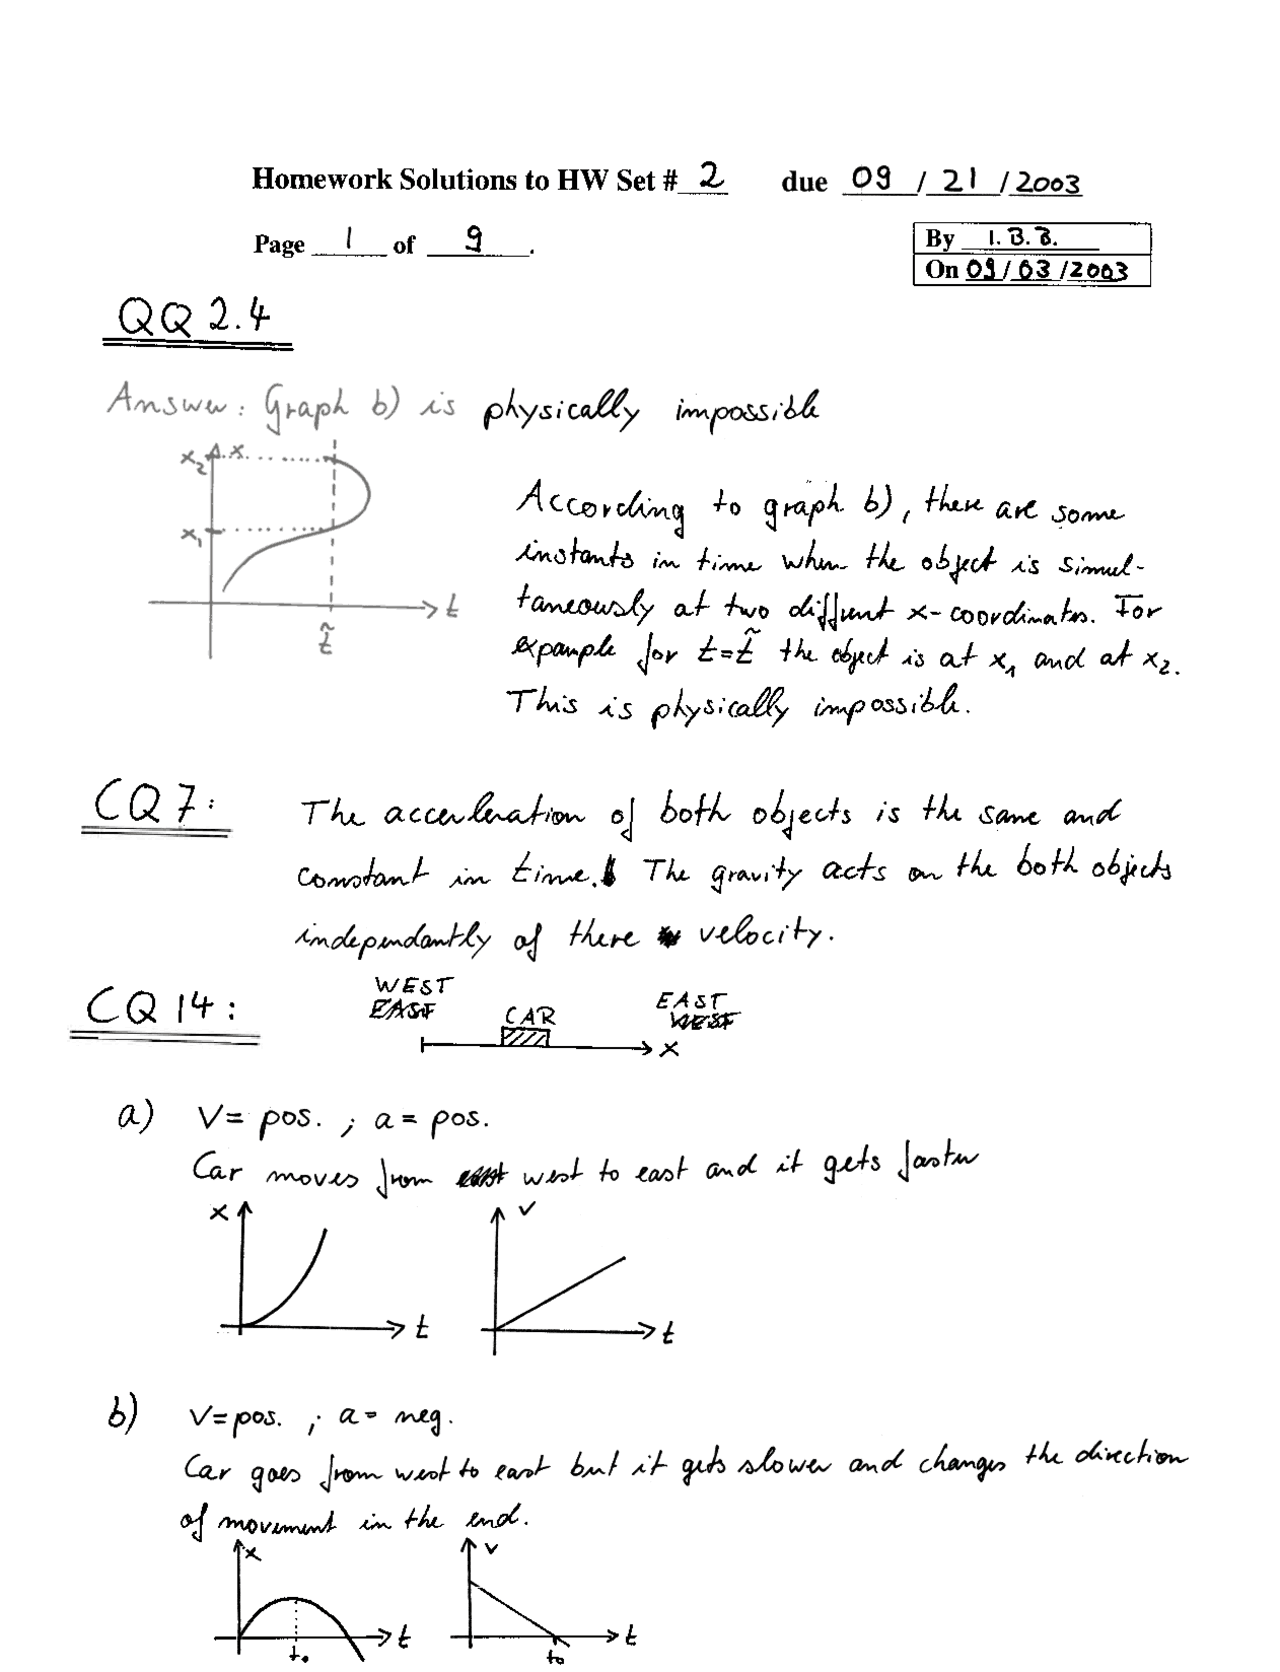 Homework Solutions to HW Set # 2 due 09 / 21 / 2003
Page 1 of 9 .
By I.B.B.
On 09/03/2003
QQ 2.4
Answer: Graph b) is physically impossible
x₂ x
x₁
t
t̃
According to graph b), there are some
instants in time when the object is simul-
taneously at two diffrent x-coordinates. For
example for t=t̃ the object is at x₁ and at x₂.
This is physically impossible.
CQ 7:
The acceeleration of both objects is the same and
constant in time. The gravity acts on the both objects
independantly of there velocity.
CQ 14:
WEST
EAST
CAR
EAST
WEST
x
a) v= pos. ; a= pos.
Car moves from east west to east and it gets faster
x
t
v
t
b) v=pos. ; a= neg.
Car goes from west to east but it gets slower and changes the direction
of movement in the end.
x
t
t₀
v
t
t₀